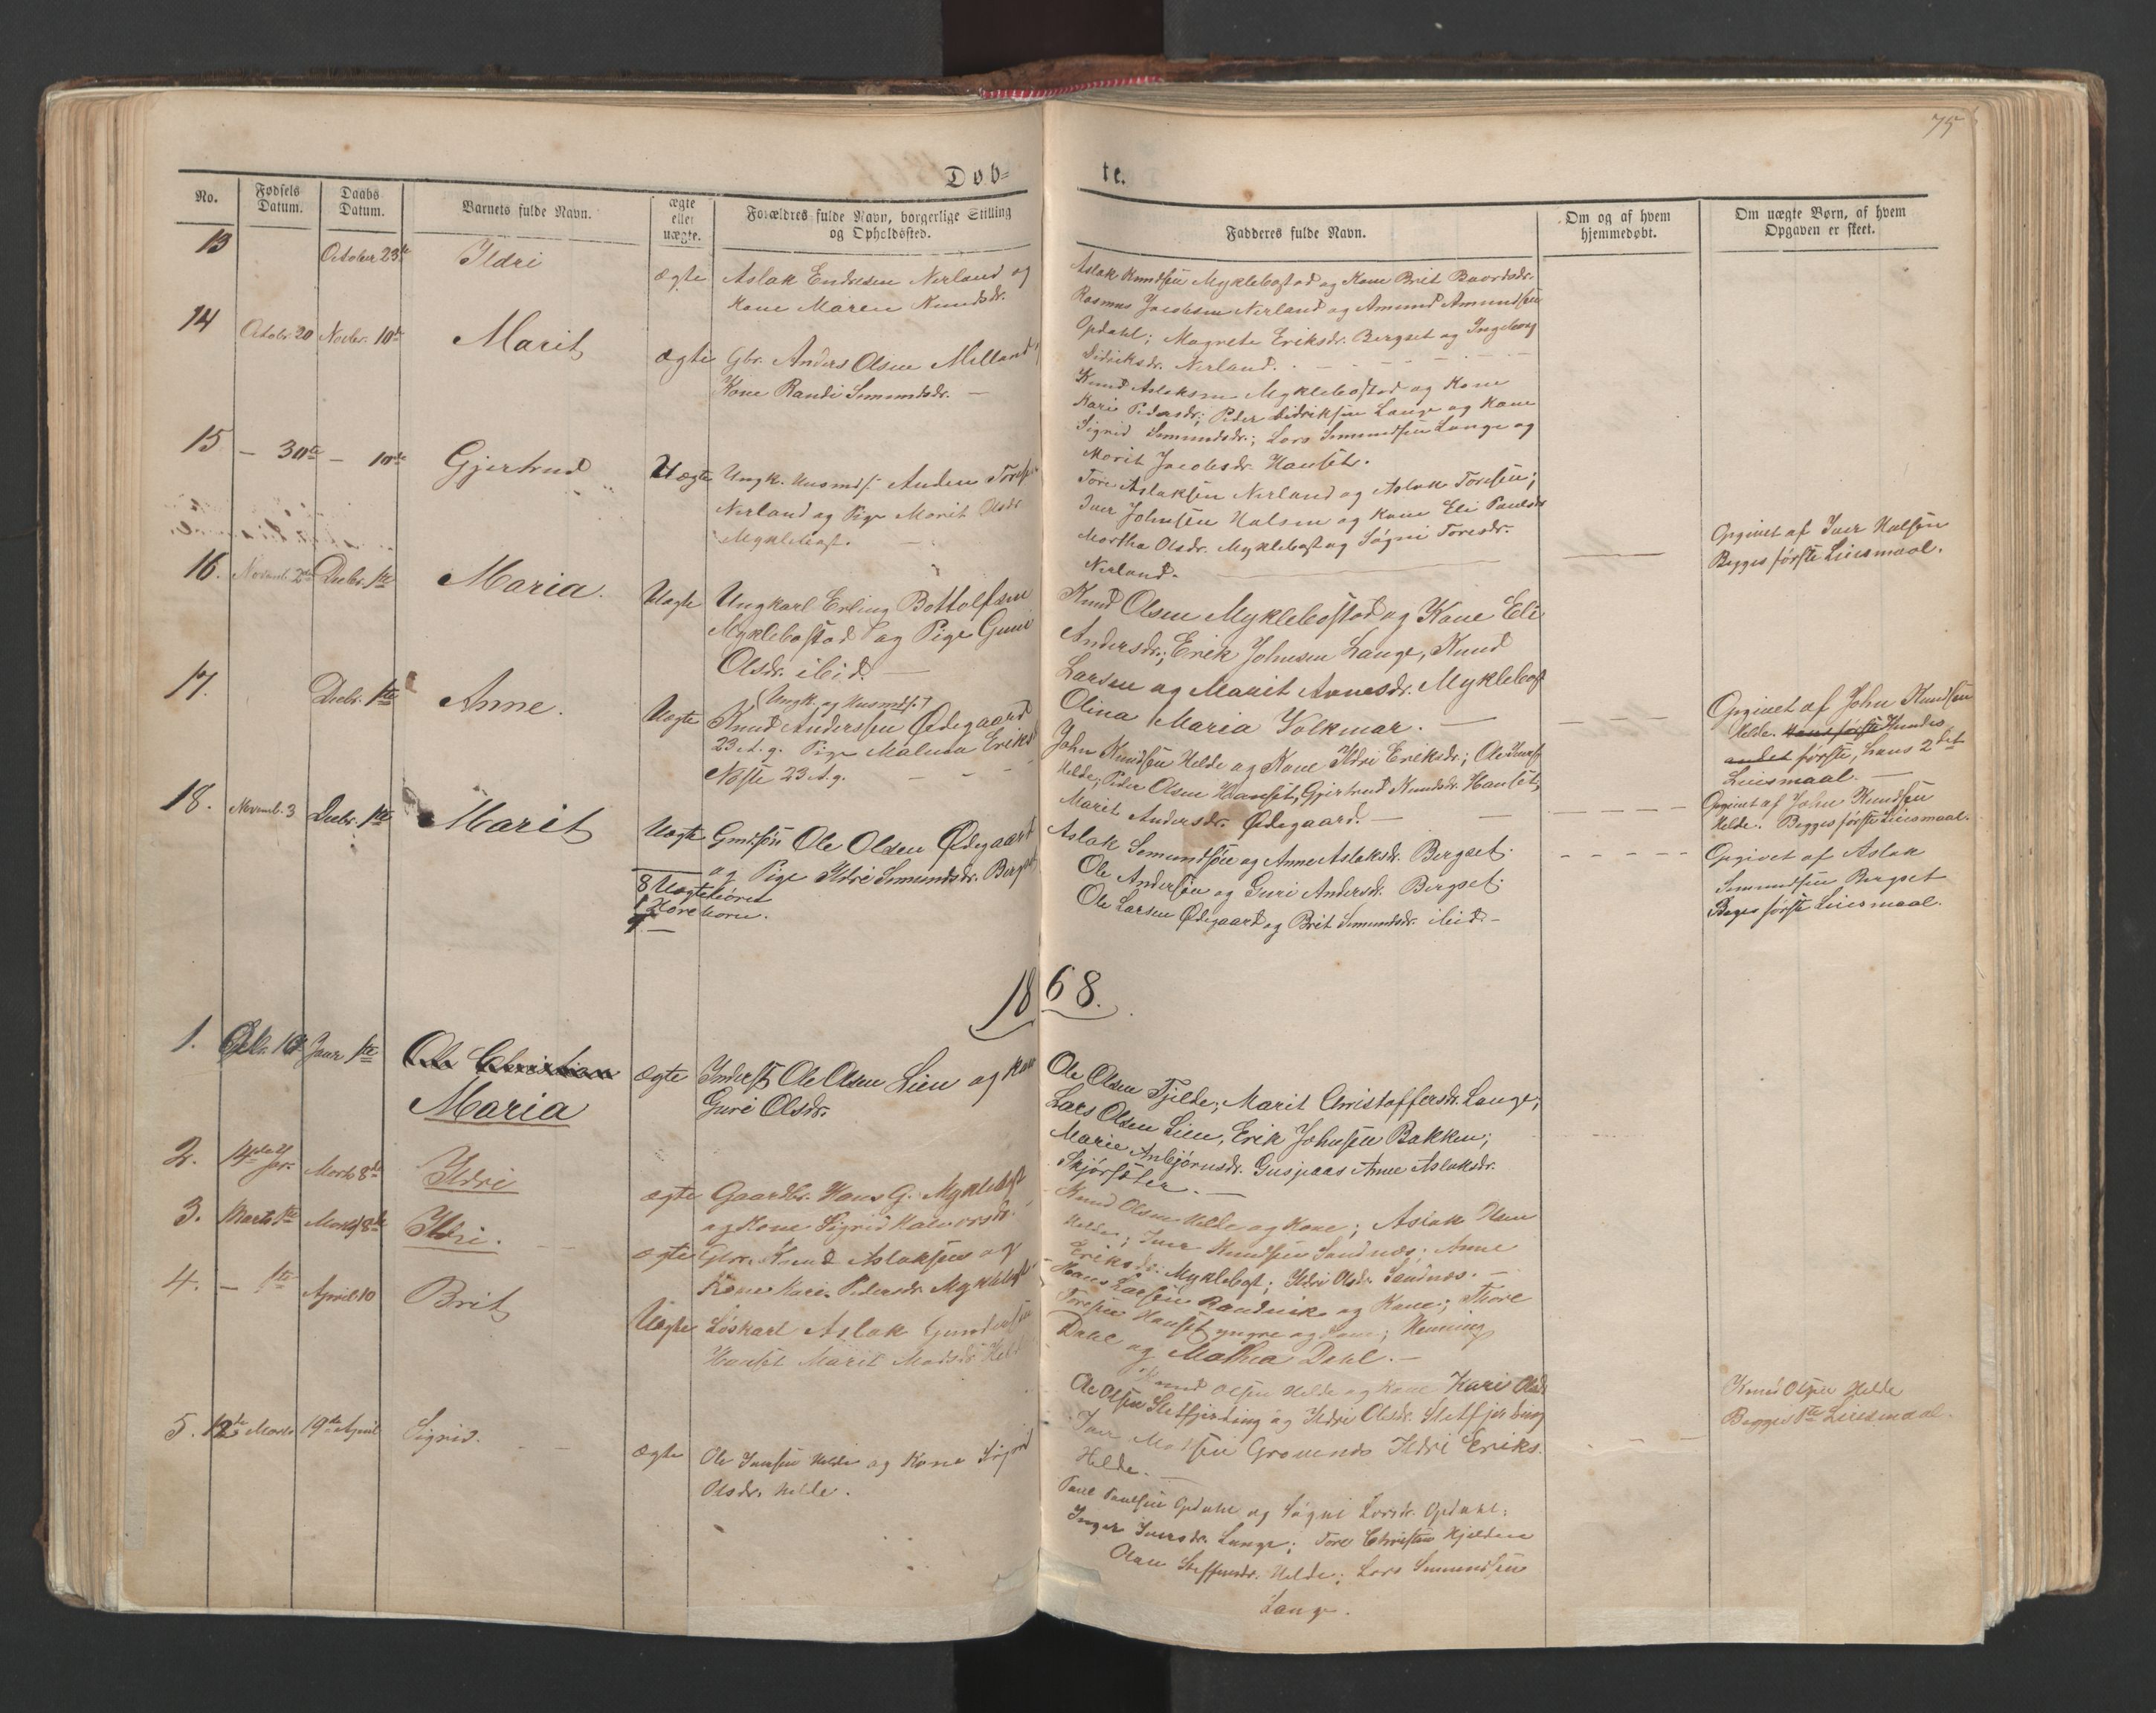 75
Døb=
te.
No.
Fødsels Datum.
Daabs Datum.
Barnets fulde Navn.
ægte eller uægte.
Forældres fulde Navn, borgerlige Stilling og Opholdssted.
Fadderes fulde Navn.
Om og af hvem hjemmedøbt.
Om uægte Børn, af hvem Opgaven er skeet.
13
October 23de
Ildri
ægte
Aslak Endresen Nerland og
Kone Maren Knudsdr.
Aslak Knudsen Myklebostad og Kone Brit Baardsdr.
Rasmus Jacobsen Nerland og Amund Amundsen
Opdahl; Magrete Eriksdr. Bergset og Ingeborg
Didriksdr. Nerland.
14
Octobr. 20
Novbr. 10de
Marit
ægte
Gbr. Anders Olsen Melland
Kone Randi Simundsdr. —
Knud Aslaksen Myklebostad og Kone
Kari Pedersdr; Peder Didriksen Lange og Kone
Sigrid Simundsdr.; Lars Simundsen Lange og
Marit Jacobsdr. Hanset.
15
— 30te
— 10de
Gjertrud
Uægte
Ungk. Husmds. Anders Toresen
Nerland og Pige Marit Olsdr.
Myklebost. —
Tore Aslaksen Nerland og Aslak Toresen;
Iver Johnsen Halsen og Kone Eli Paulsdr
Martha Olsdr. Myklebost og Søgni Toresdr.
Nerland.
Opgivet af Iver Halsen
Begges første Leiesmaal.
16.
Novemb. 2den
Decbr. 1ste
Maria.
Uægte
Ungkarl Erling Bottolfsen
Myklebostad og Pige Guri
Olsdr. ibid. —
Knud Olsen Myklebostad og Kone Eli
Andersdr.; Erik Johnsen Lange, Knud
Larsen og Marit Arnesdr. Myklebost
Olina Maria Volkmar. —
Opgivet af John Knudsen
Helde. Hans første Hendes
andet første, hans 2det
Leiesmaal. —
17.
Decbr. 1ste
Anne.
Uægte
(Ungk. og Husmds.)
Knud Anderssen Ødegaard
23 A. g. Pige Malena Eriksd
Nøste 23 A. g.
John Knudsen Helde og Kone Ildri Eriksdr.; Ole Iversen
Helde; Peder Olsen Hanset, Gjertrud Knudsdr. Hanset,
Marit Andersdr. Ødegaard. —
Opgivet af John Knudsen
Helde. Begges første Leiesmaal.
18.
Novemb. 3
Decbr. 1ste
Marit
Uægte
Gmdsøn Ole Olsen Ødegaard
og Pige Ildri Simundsdr. Bergset
Aslak Simundsøn og Anne Aslaksdr. Bergset.
Ole Andersen og Guri Andersdr. Bergset.
Ole Larsen Ødegaard og Brit Simundsdr. ibid. —
Opgivet af Aslak
Simundsen Bergset
Begges første Leiesmaal.
8 Uægtebørn
1 Horebarn.
9
1868.
1.
Janr. 1ste
Ole Christian
Maria
ægte
Inderst Ole Olsen Lien og Kone
Guri Olsdr.
Ole Olsen Fjelde; Marit Christoffersdr. Lange;
Lars Olsen Lien; Erik Johnsen Bakken;
Marie Anbjørnsdr. Gusjaas Anne Aslaksdr.
Skjørseter. —
2.
Marts 8de
Ildri
ægte
Gaardbr. Hans G. Myklebost
og Kone Sigrid Halvorsdr.
Knud Olsen Helde og Kone; Aslak Olsen
Helde; Iver Knudsen Sandnæs; Anne
Eriksdr. Myklebost; Ildri Olsdr. Sandnæs. —
3.
Marts 1ste
Marts 8de
Ildri.
ægte
Gbr. Knud Aslaksen og
Kone Kari Pedersdr. Myklebost
Hans Larsen Randvik og Kone; Thore
Toresen Hanset yngre og Kone; Henning
Dahl og Mathea Dahl. —
4.
— 1ste
April 10
Brit
Uægte
Løskarl Aslak Gundersen
Hanset Marit Madsdr Helde
Knud Olsen Helde og Kone Kari Olsdr
Ole Olsen Sletfjerding og Ildri Olsdr. Sletfjerding
Iver Madsen Grovende Ildri Eriks.
Helde. —
Knud Olsen Helde
Begges 1ste Leiesmaal.
5.
12te Marts
19de April
Sigrid.
ægte
Ole Iversen Helde og Kone Sigrid
Olsdr. Helde.
Paul Paulsen Opdahl og Søgni Larsdr. Opdahl;
Inger Iversdr. Lange; Tore Christen Hjelden
Olau Steffensdr. Helde; Lars Simundsen
Lange.